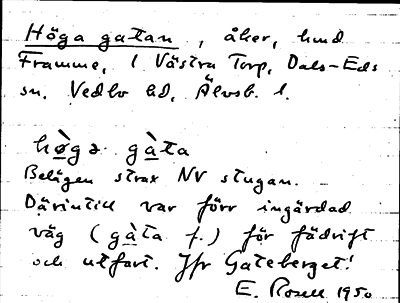 Höga gatan, åker, hmd
Framme, 1 Västra Torp, Dals-Eds
sn, Vedbo hd, Älvsb. l.
hø̀gə gàta
Belägen strax NV stugan.
Därintill var förr ingärdad
väg (gàta f.) för fädrift
och utfart. Jfr Gateberget!
E. Rosell 1950